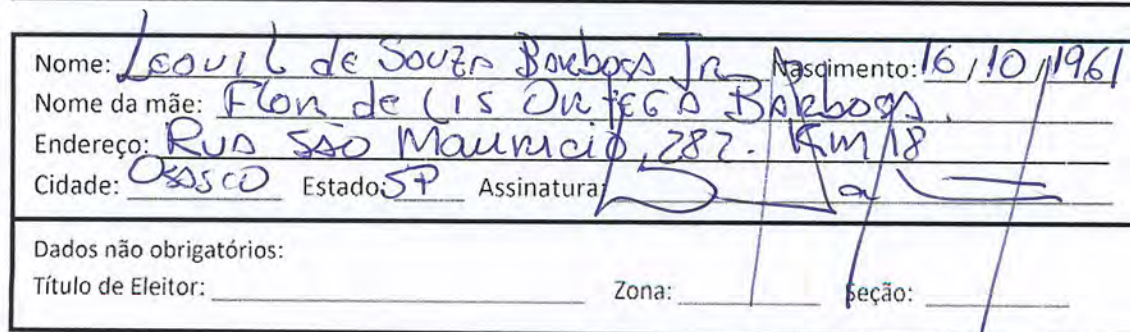 Nome: Leovil de Souza Barbosa Jr Nascimento: 16/10/1961
Nome da mãe: Flor de Lis Ortega Barbosa.
Endereço: Rua São Mauricio, 282. Km 18
Cidade: Osasco Estado: SP Assinatura:
Dados não obrigatórios:
Título de Eleitor: Zona: Seção: